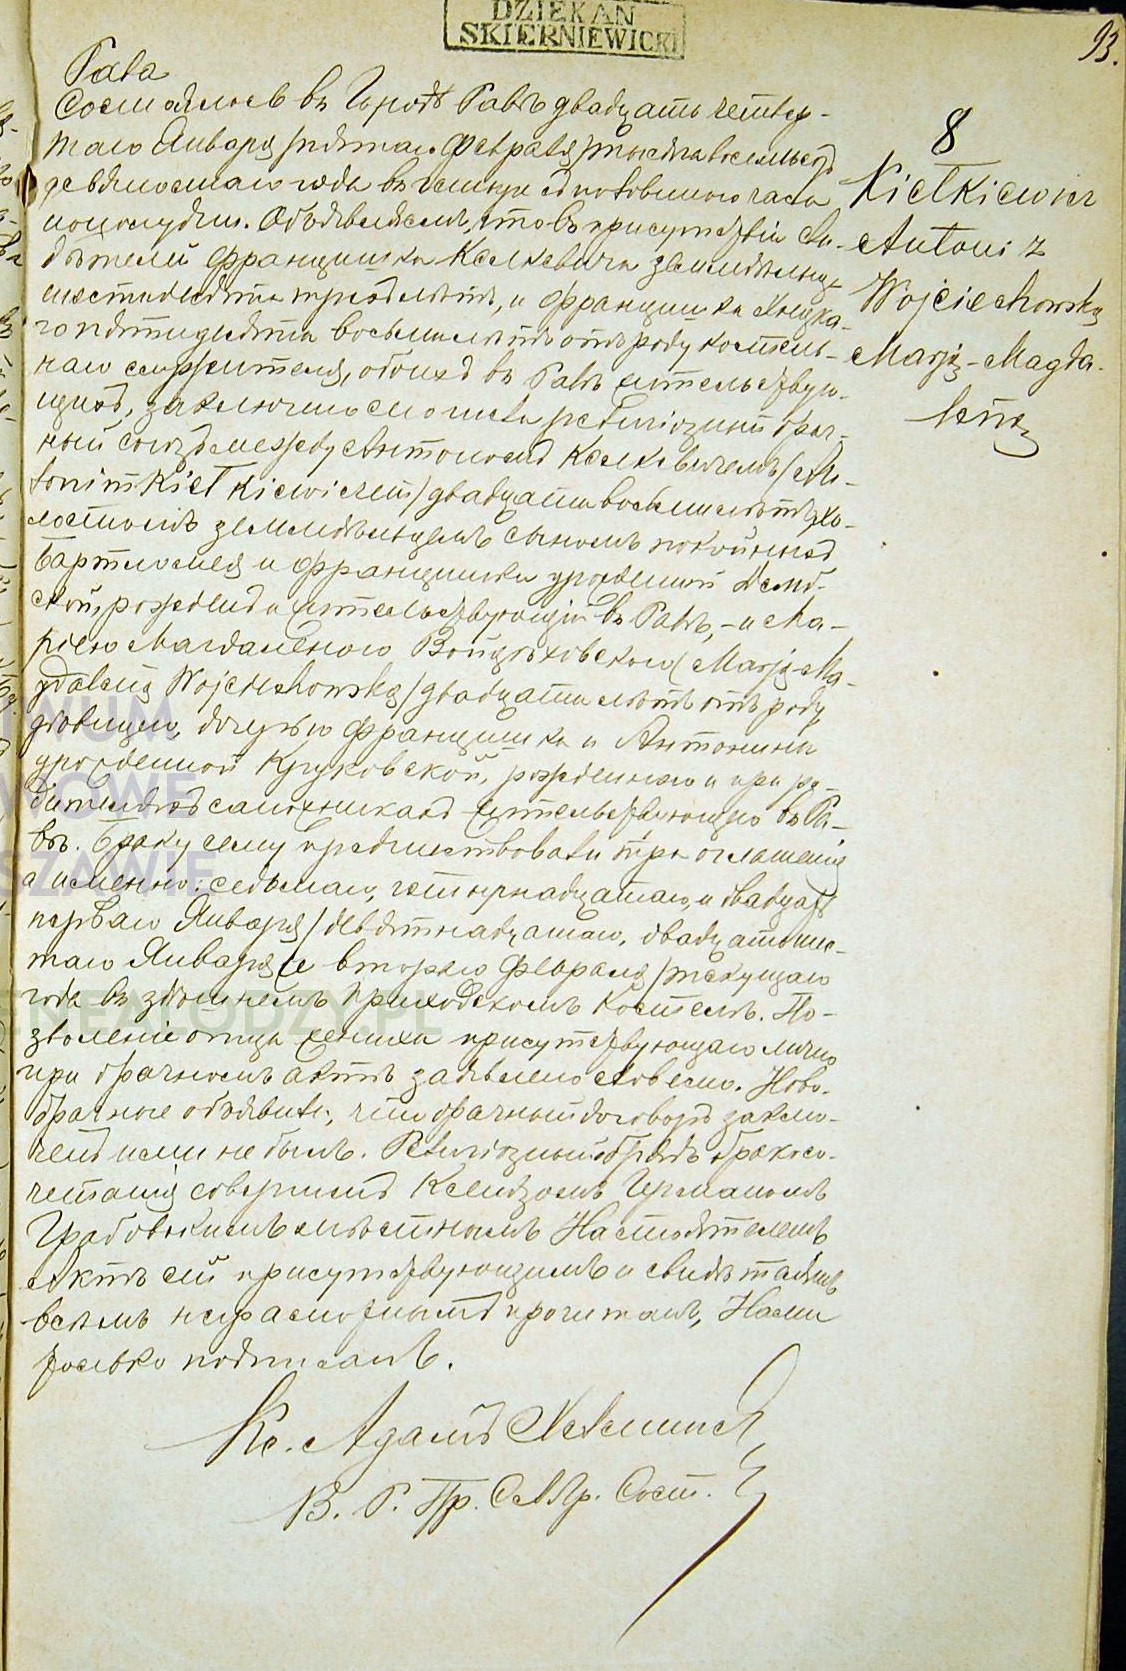 DZIEKAN
SKIERNIEWICKI
93.
Рава
Состоялось въ Городѣ Равѣ двадцать четвер-
таго Января /пятаго Февраля/ тысяча восемьсотъ
девяностаго года въ четыре съ половиною часа
пополудни. Объявляемъ, что въ присутствіи сви-
дѣтелей Францишка Келкевича земледѣльца
шестидесяти трехъ лѣтъ, и Францишка
го пятидесяти восьми лѣтъ отъ роду костель-
наго служителя, обоихъ въ Равѣ жительствую-
щихъ, заключено сего числа религіозный брач-
ный союзъ между Антономъ Келкевичемъ /An-
tonim Kiełkiewiczem/ двадцати восьми лѣтъ, хо-
лостымъ земледѣльцемъ сыномъ покойныхъ
Бартломея и Францишки урожденной
ской, рожденъ и жительствующій въ Равѣ, - и Ма-
ріею Магдаленою Войцѣховскою /Marją-Ma-
gdaleną Wojciechowską/ двадцати лѣтъ отъ роду
дѣвицею, дочерью Францишка и Антонины
урожденной Круковской, рожденною и при ро-
дителяхъ жительствующею въ Ра-
вѣ. Браку сему предшествовали три оглашенія
а именно: седьмаго, четырнадцатаго, и двадцать
перваго Января /девятнадцатаго, двадцать шес-
таго Января и втораго Февраля/ текущаго
года въ здѣшнемъ Приходскомъ Костелѣ. По-
зволеніе отца жениха присутствующаго лично
при брачномъ актѣ заявлено словесно. Ново-
брачные объявили, что брачный договоръ заклю-
ченъ ими не былъ. Религіозный обрядъ бракосо-
четанія совершенъ Ксендзомъ Германомъ
Грабовскимъ мѣстнымъ Настоятелемъ
Актъ сей присутствующимъ и свидѣтелямъ
всѣмъ неграмотнымъ прочитанъ, Нами
только подписанъ.
Кс. Адамъ
В. Р. Пр. Сост.
8
Kiełkiewicz
Antoni z
Wojciechowską
Marją-Magda-
leną